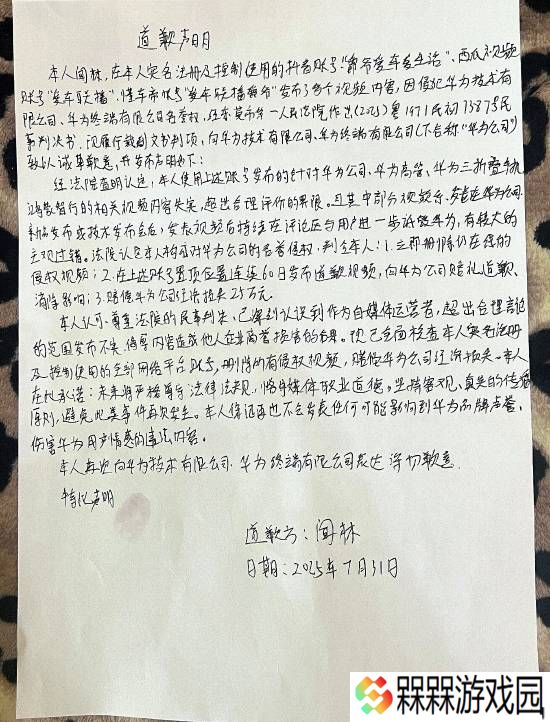 道歉声明
本人闻林，在本人实名注册及控制使用的抖音账号"爵爷爱车爱生活"、西瓜视频
账号"爱车联播"、懂车帝账号"爱车联播"发布了多个视频内容，因侵犯华为技术有
限公司、华为终端有限公司名誉权，经东莞市第一人民法院作出(2025)粤1971民初73875民
事判决书。现履行裁判文书判项，向华为技术有限公司、华为终端有限公司(下合称"华为公司")
致以诚挚歉意，并发布声明如下：
经法院查明认定，本人使用上述账号发布的针对华为公司、华为高管、华为三折叠手机
等数码的相关视频内容失实，超出合理评价的界限。且其中部分视频系
新品发布或技术发布会后，发表视频后持续在评论区与用户进一步诋毁华为，有较大的
主观过错。法院认定本人构成对华为公司的名誉侵权，判令本人：1.立即删除仍在线的
侵权视频；2.在上述账号置顶位置连续60日发布道歉视频，向华为公司赔礼道歉、
消除影响；3.赔偿华为公司经济损失25万元。
本人认可、尊重法院的民事判决，已深刻认识到作为自媒体运营者，超出合理言论
的范围发布不实、侮辱内容造成他人企业商誉损害的危害。现已全面核查本人实名注册
及控制使用的全部网络平台账号，删除所有侵权视频，赔偿华为公司经济损失。本人
在此承诺：未来将严格遵守法律法规，恪守媒体职业道德。坚持客观、真实的传播
原则，避免此类事件再次发生。本人保证再也不会发表任何可能影响到华为品牌声誉、
伤害华为用户情感的违法内容。
本人再次向华为技术有限公司、华为终端有限公司表达深切歉意
特此声明
道歉人：闻林
日期：2025年7月31日
槑槑游戏园